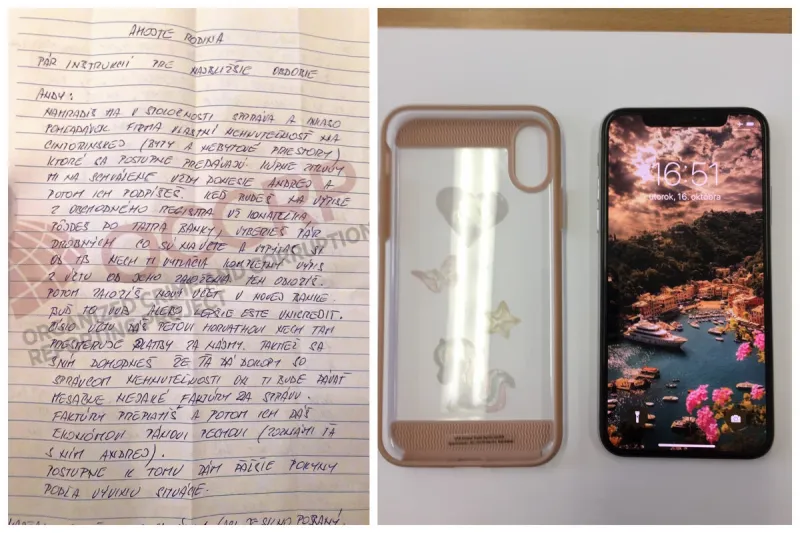 AHOJTE RODINA
PÁR INŠTRUKCIÍ PRE NAJBLIŽŠIE OBDOBIE
ANDY:
NAHRADÍŠ MA V SPOLOČNOSTI SPRÁVA A INKASO
POHĽADÁVOK FIRMA VLASTNÍ NEHNUTEĽNOSŤ NA
CINTORÍNSKEJ (BYTY A NEBYTOVÉ PRIESTORY)
KTORÉ SA POSTUPNE PREDÁVAJÚ. KÚPNE ZMLUVY
MI NA SCHVÁLENIE VŽDY DONESIE ANDREJ A
POTOM ICH PODPÍŠEŠ. KEĎ BUDEŠ NA VÝPISE
Z OBCHODNÉHO REGISTRA UŽ KONATEĽKA
PÔJDEŠ DO TATRA BANKY, VYBERIEŠ PÁR
DROBNÝCH ČO SÚ NA ÚČTE A VYPÝTAŠ SI
OD TB NECH TI VYTLAČIA KOMPLETNÝ VÝPIS
Z ÚČTU OD JEHO ZALOŽENIA TEN ODLOŽÍŠ.
POTOM ZALOŽÍŠ NOVÝ ÚČET V NOVEJ BANKE.
BUĎ TO ALEBO LEPŠIE EŠTE UNICREDIT.
ČÍSLO ÚČTU DÁŠ PEŤOVI HORVÁTHOVI NECH TAM
PRESMERUJE PLATBY ZA NÁJMY. TAKTIEŽ SA
S NÍM DOHODNEŠ ŽE ŤA DÁ DOKOPY SO
SPRÁVCOM NEHNUTEĽNOSTI ON TI BUDE DÁVAŤ
MESAČNE NEJAKÉ FAKTÚRY ZA SPRÁVU.
FAKTÚRY PREPLATÍŠ A POTOM ICH DÁŠ
EKONÓMOVI PÁNOVI PECHOVI (ZOZNÁMI ŤA
S NÍM ANDREJ).
POSTUPNE K TOMU DÁM ĎALŠIE POKYNY
PODĽA VÝVINU SITUÁCIE.
OCCRP
ORGANIZED CRIME AND CORRUPTION
REPORTING PROJECT
16:51
utorok, 16. októbra